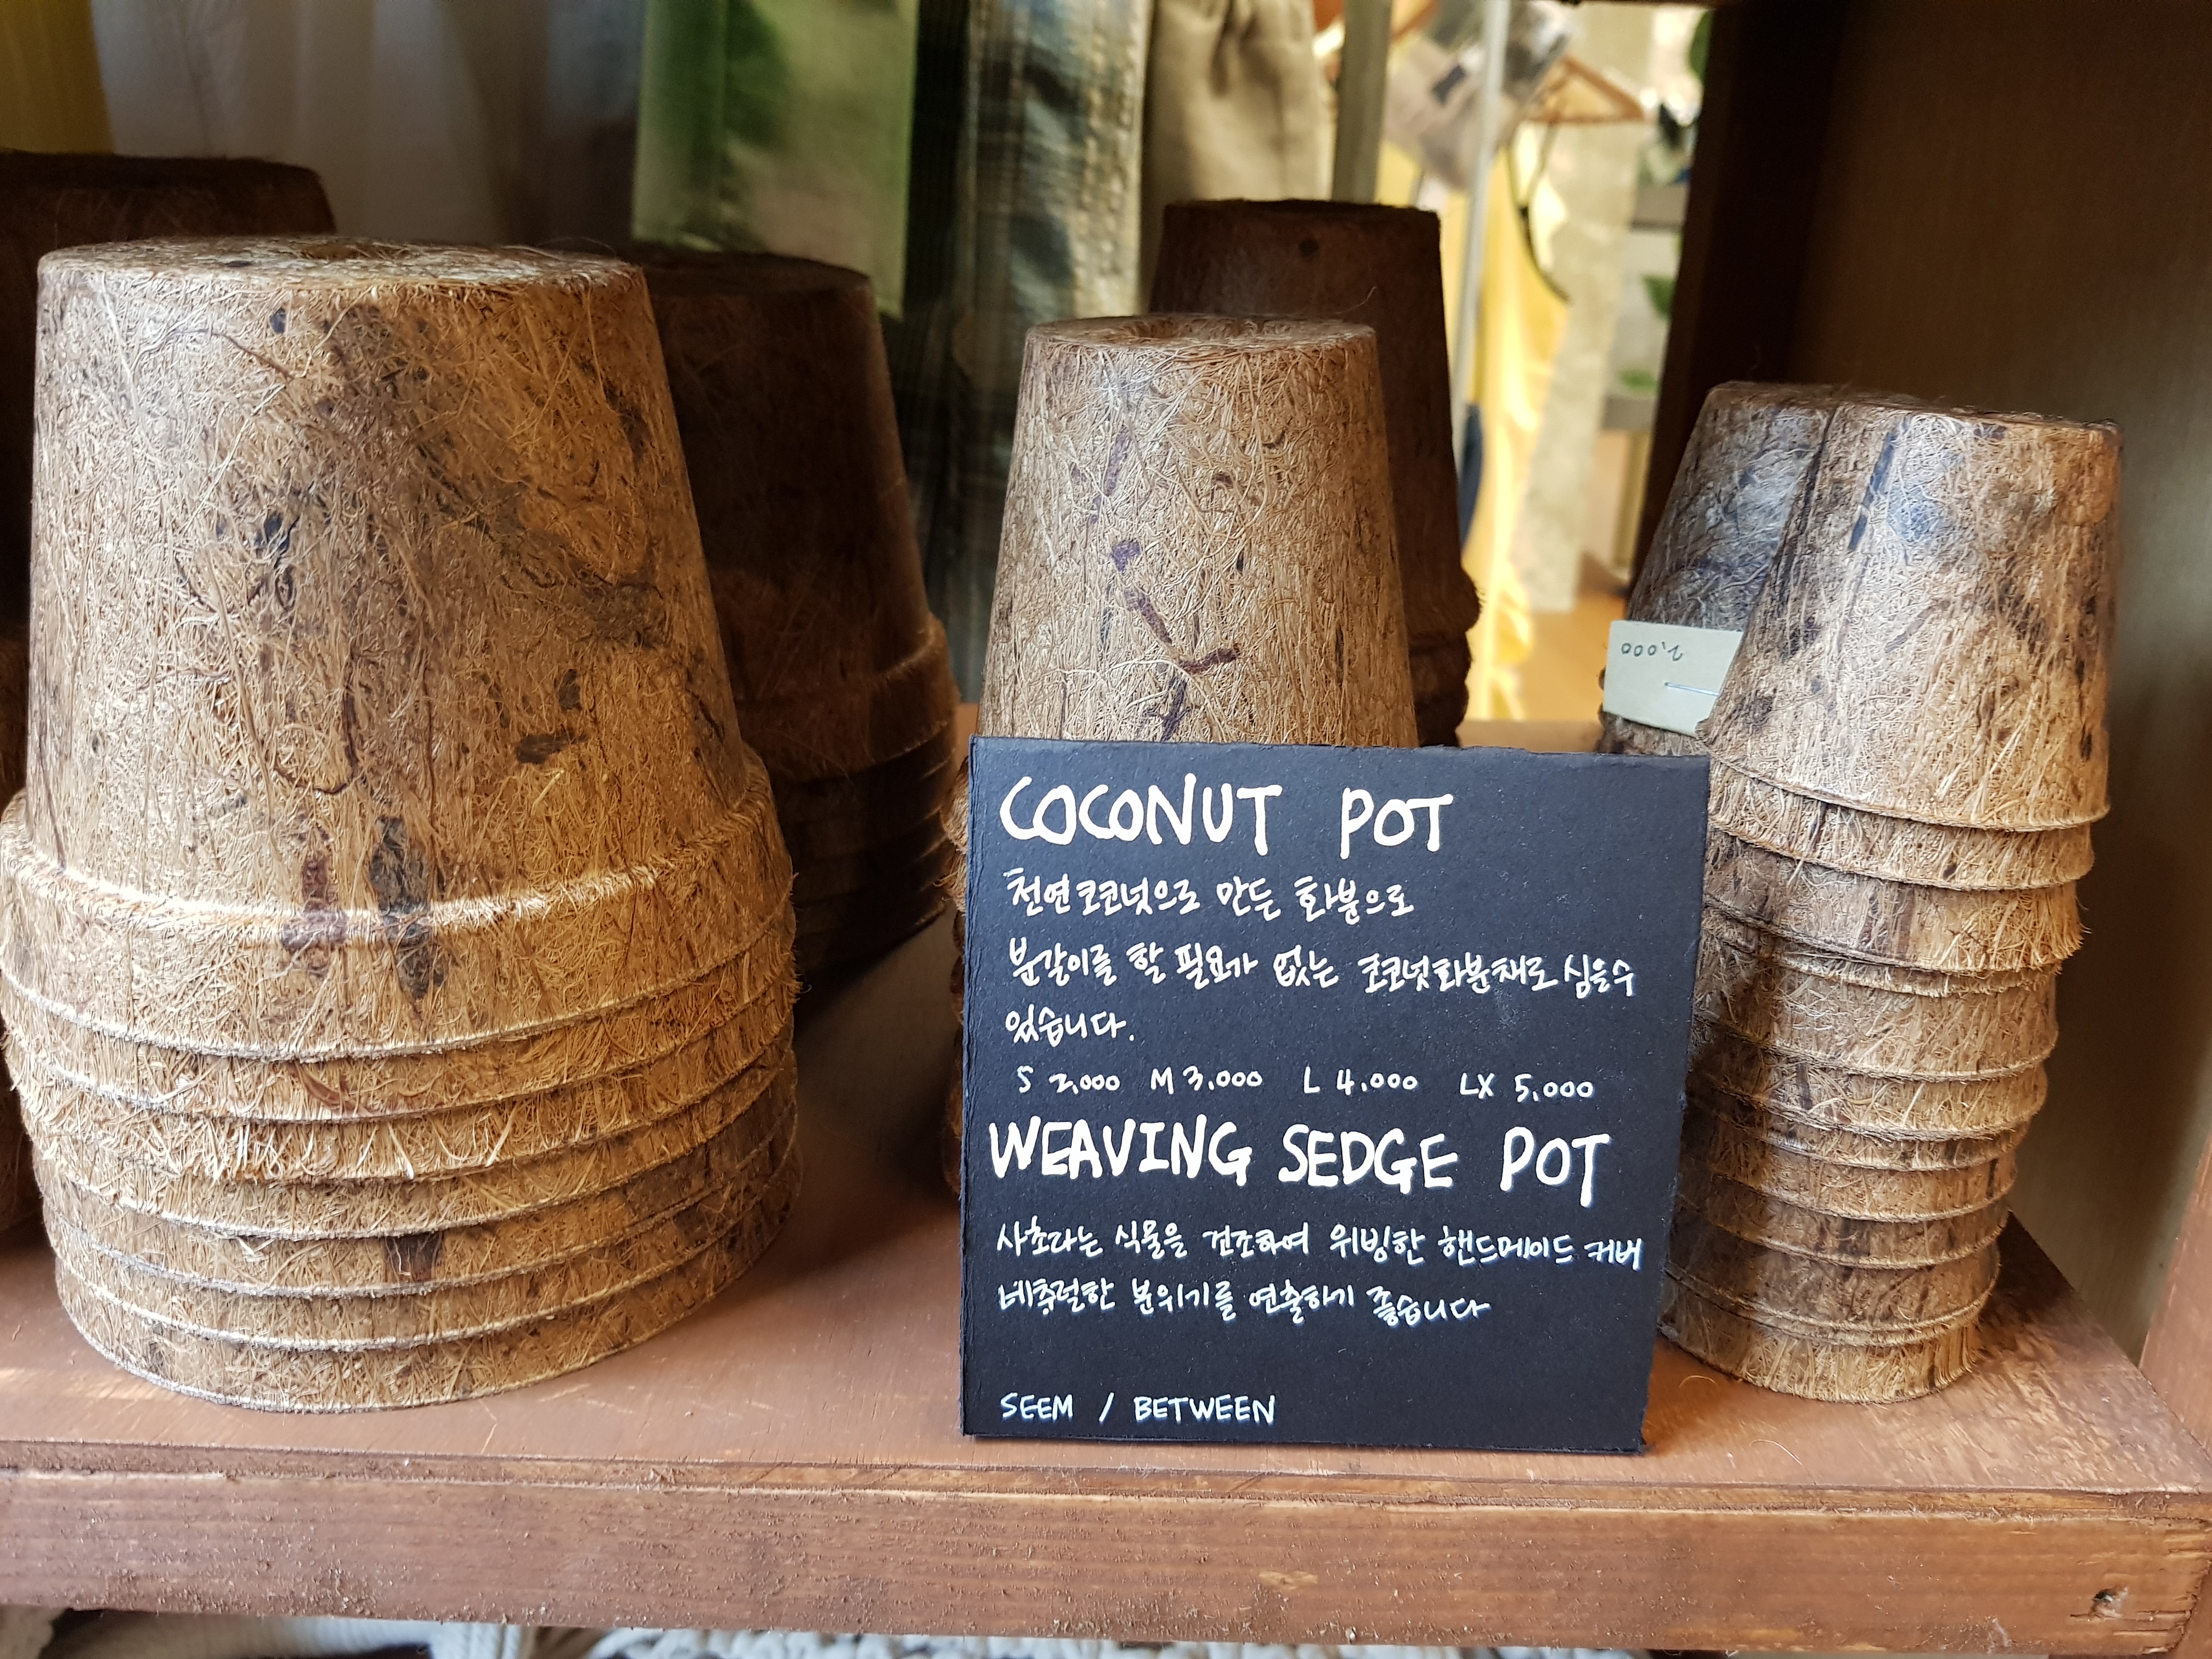 COCONUT POT
천연코코넛으로 만든 화분으로
분갈이를 할 필요가 없는 코코넛화분채로 심을수
있습니다.
S 2,000 M 3,000 L 4,000 LX 5,000
WEAVING SEDGE POT
사초라는 식물을 건조하여 위빙한 핸드메이드 커버
네추럴한 분위기를 연출하기 좋습니다
SEEM / BETWEEN
2,000